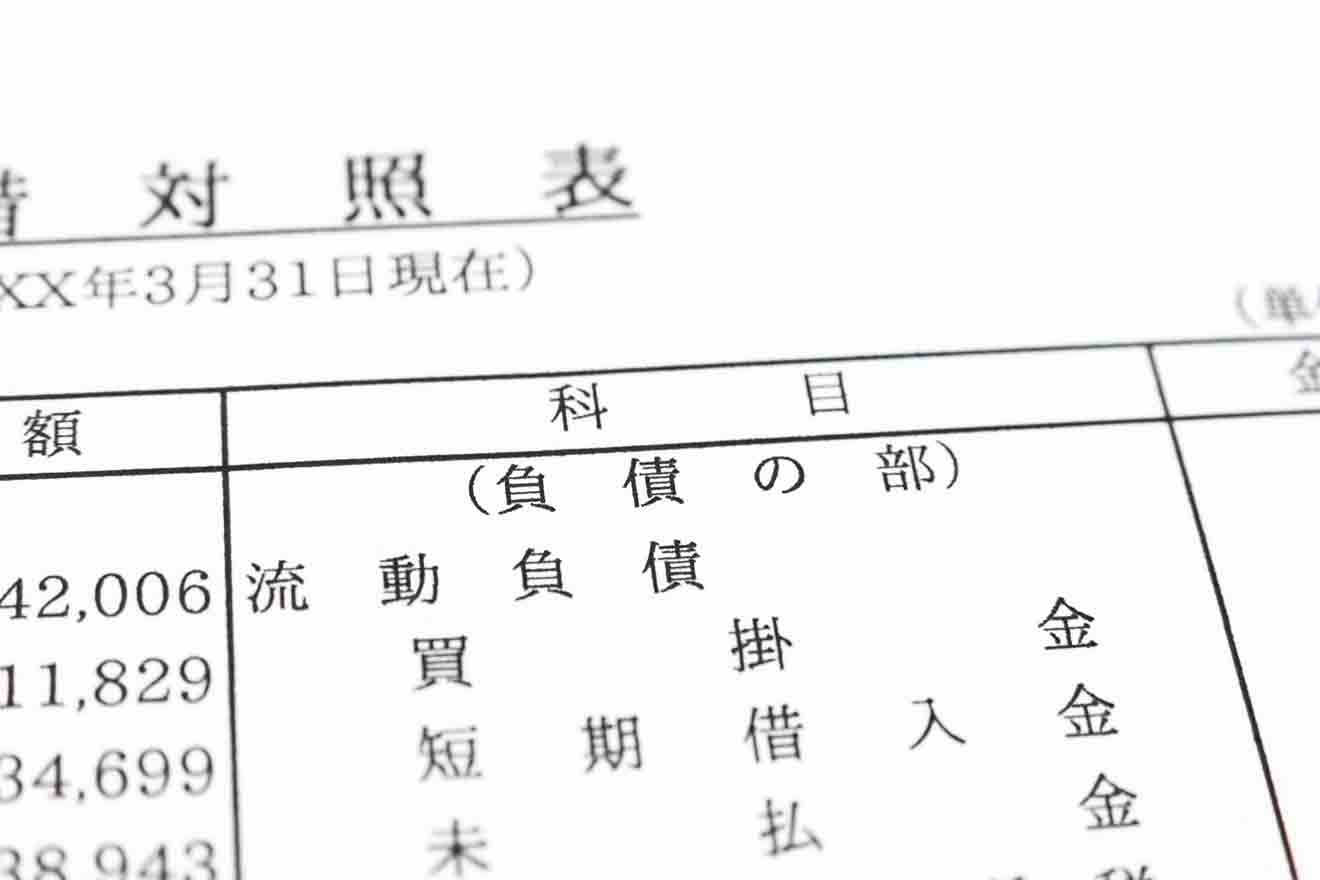 対照表
XX年3月31日現在）
（単
額 科目 金
（負債の部）
42,006 流動負債
11,829 買掛金
34,699 短期借入金
38,943 未払金
税